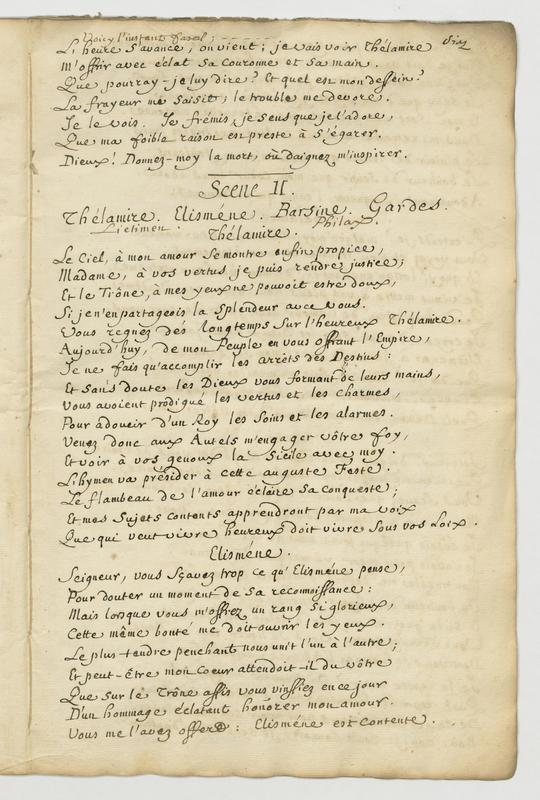 Voicy l'instant fatal;
L'heure s'avance, on vient; je vais voir Thélamire dix
M'offrir avec éclat sa Couronne et sa main.
Que pourray-je luy dire? Et quel est mon dessein?
La frayeur me saisit, le trouble me devore.
Je le vois. Je frémis, je sens que je l'adore,
Que ma foible raison est preste à s'égarer.
Dieux! Donnez-moy la mort, où daignez m'inspirer.
Scene II.
Thélamire. Elisméne. Barsine. Gardes.
Lictimen. Philax.
Thélamire.
Le Ciel, à mon amour se montre enfin propice,
Madame, à vos vertus je puis rendre justice;
Et le Trône, à mes yeux ne pouvoit estre doux,
Si je n'en partageois la splendeur avec vous.
Vous regnez dès longtemps sur l'heureux Thélamire.
Aujourd'huy, de mon Peuple en vous offrant l'Empire,
Je ne fais qu'accomplir les arrêts des Destins:
Et sans doute les Dieux vous formant de leurs mains,
Vous avoient prodigué les vertus et les charmes,
Pour adoucir d'un Roy les soins et les alarmes.
Venez donc aux Autels m'engager vôtre foy,
Et voir à vos genoux la Sicile avec moy.
L'hymen va présider à cette auguste Feste.
Le flambeau de l'amour éclaire sa conqueste;
Et mes Sujets contents apprendront par ma voix
Que qui veut vivre heureux doit vivre sous vos Loix.
Elisméne.
Seigneur, vous sçavez trop ce qu'Elisméne pense,
Pour douter un moment de sa reconnoissance:
Mais lorsque vous m'offrez un rang si glorieux,
Cette même bonté me doit ouvrir les yeux.
Le plus tendre penchant nous unit l'un à l'autre;
Et peut-être mon Coeur attendoit-il du vôtre
Que sur le Trône assis vous vinssiez en ce jour
D'un hommage éclatant honorer mon amour.
Vous me l'avez offert: Elisméne est contente.